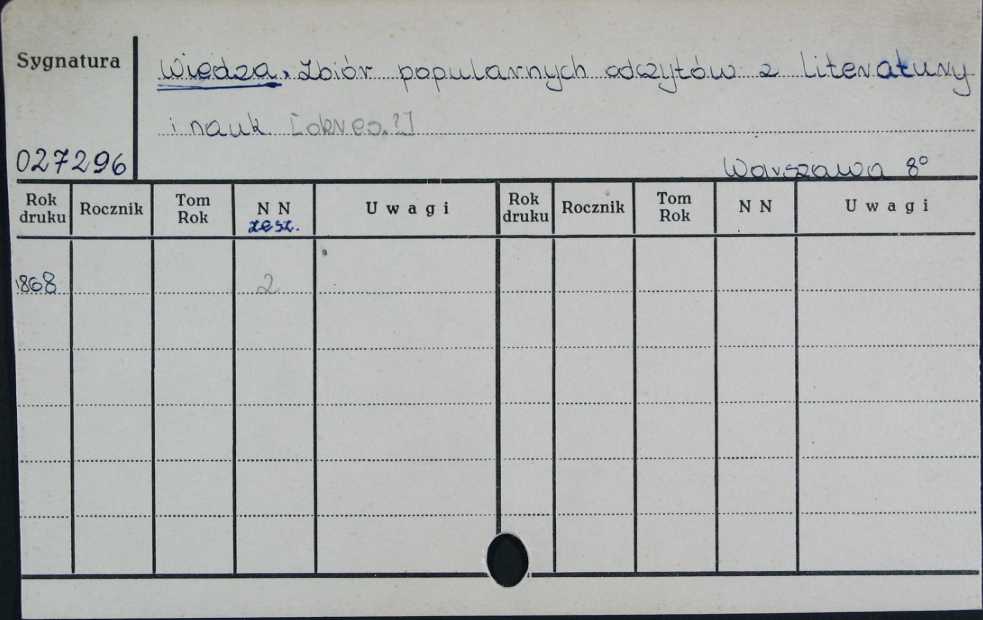 Sygnatura
Wiedza. Zbiór popularnych odczytów z literatury
i nauk [okres.?]
027296
Warszawa 8°
Rok druku Rocznik Tom Rok N N zesz. Uwagi Rok druku Rocznik Tom Rok N N Uwagi
1868 2